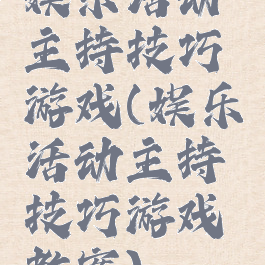 娱乐活动
主持技巧
游戏(娱乐
活动主持
技巧游戏
教案)